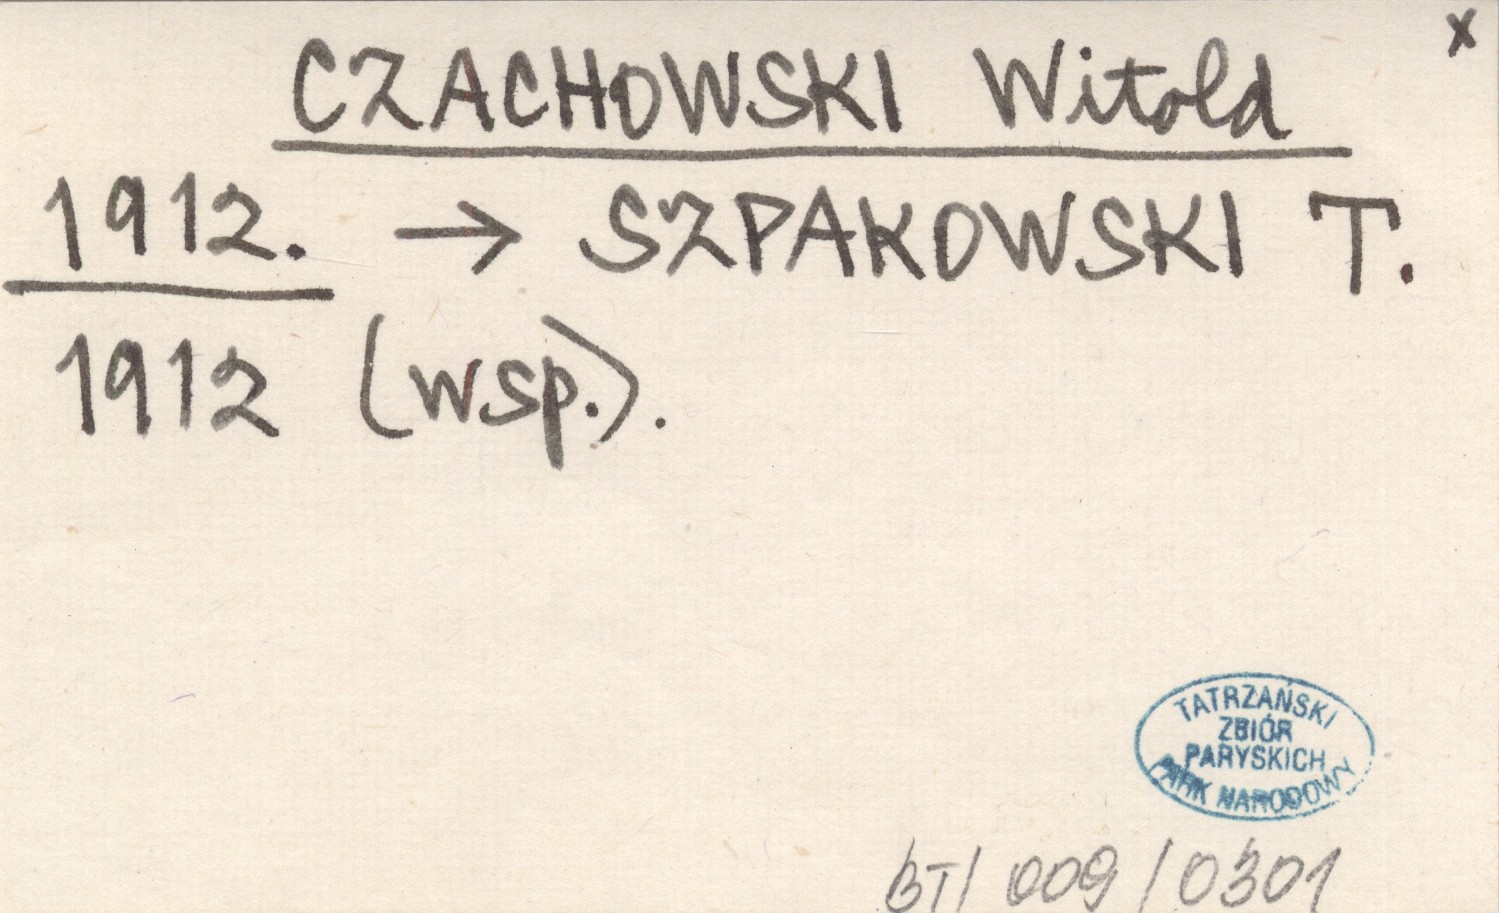 x
CZACHOWSKI Witold
1912. → SZPAKOWSKI T.
1912 (wsp.).
TATRZAŃSKI
ZBIÓR
PARYSKICH
PARK NARODOWY
BT/009/0301